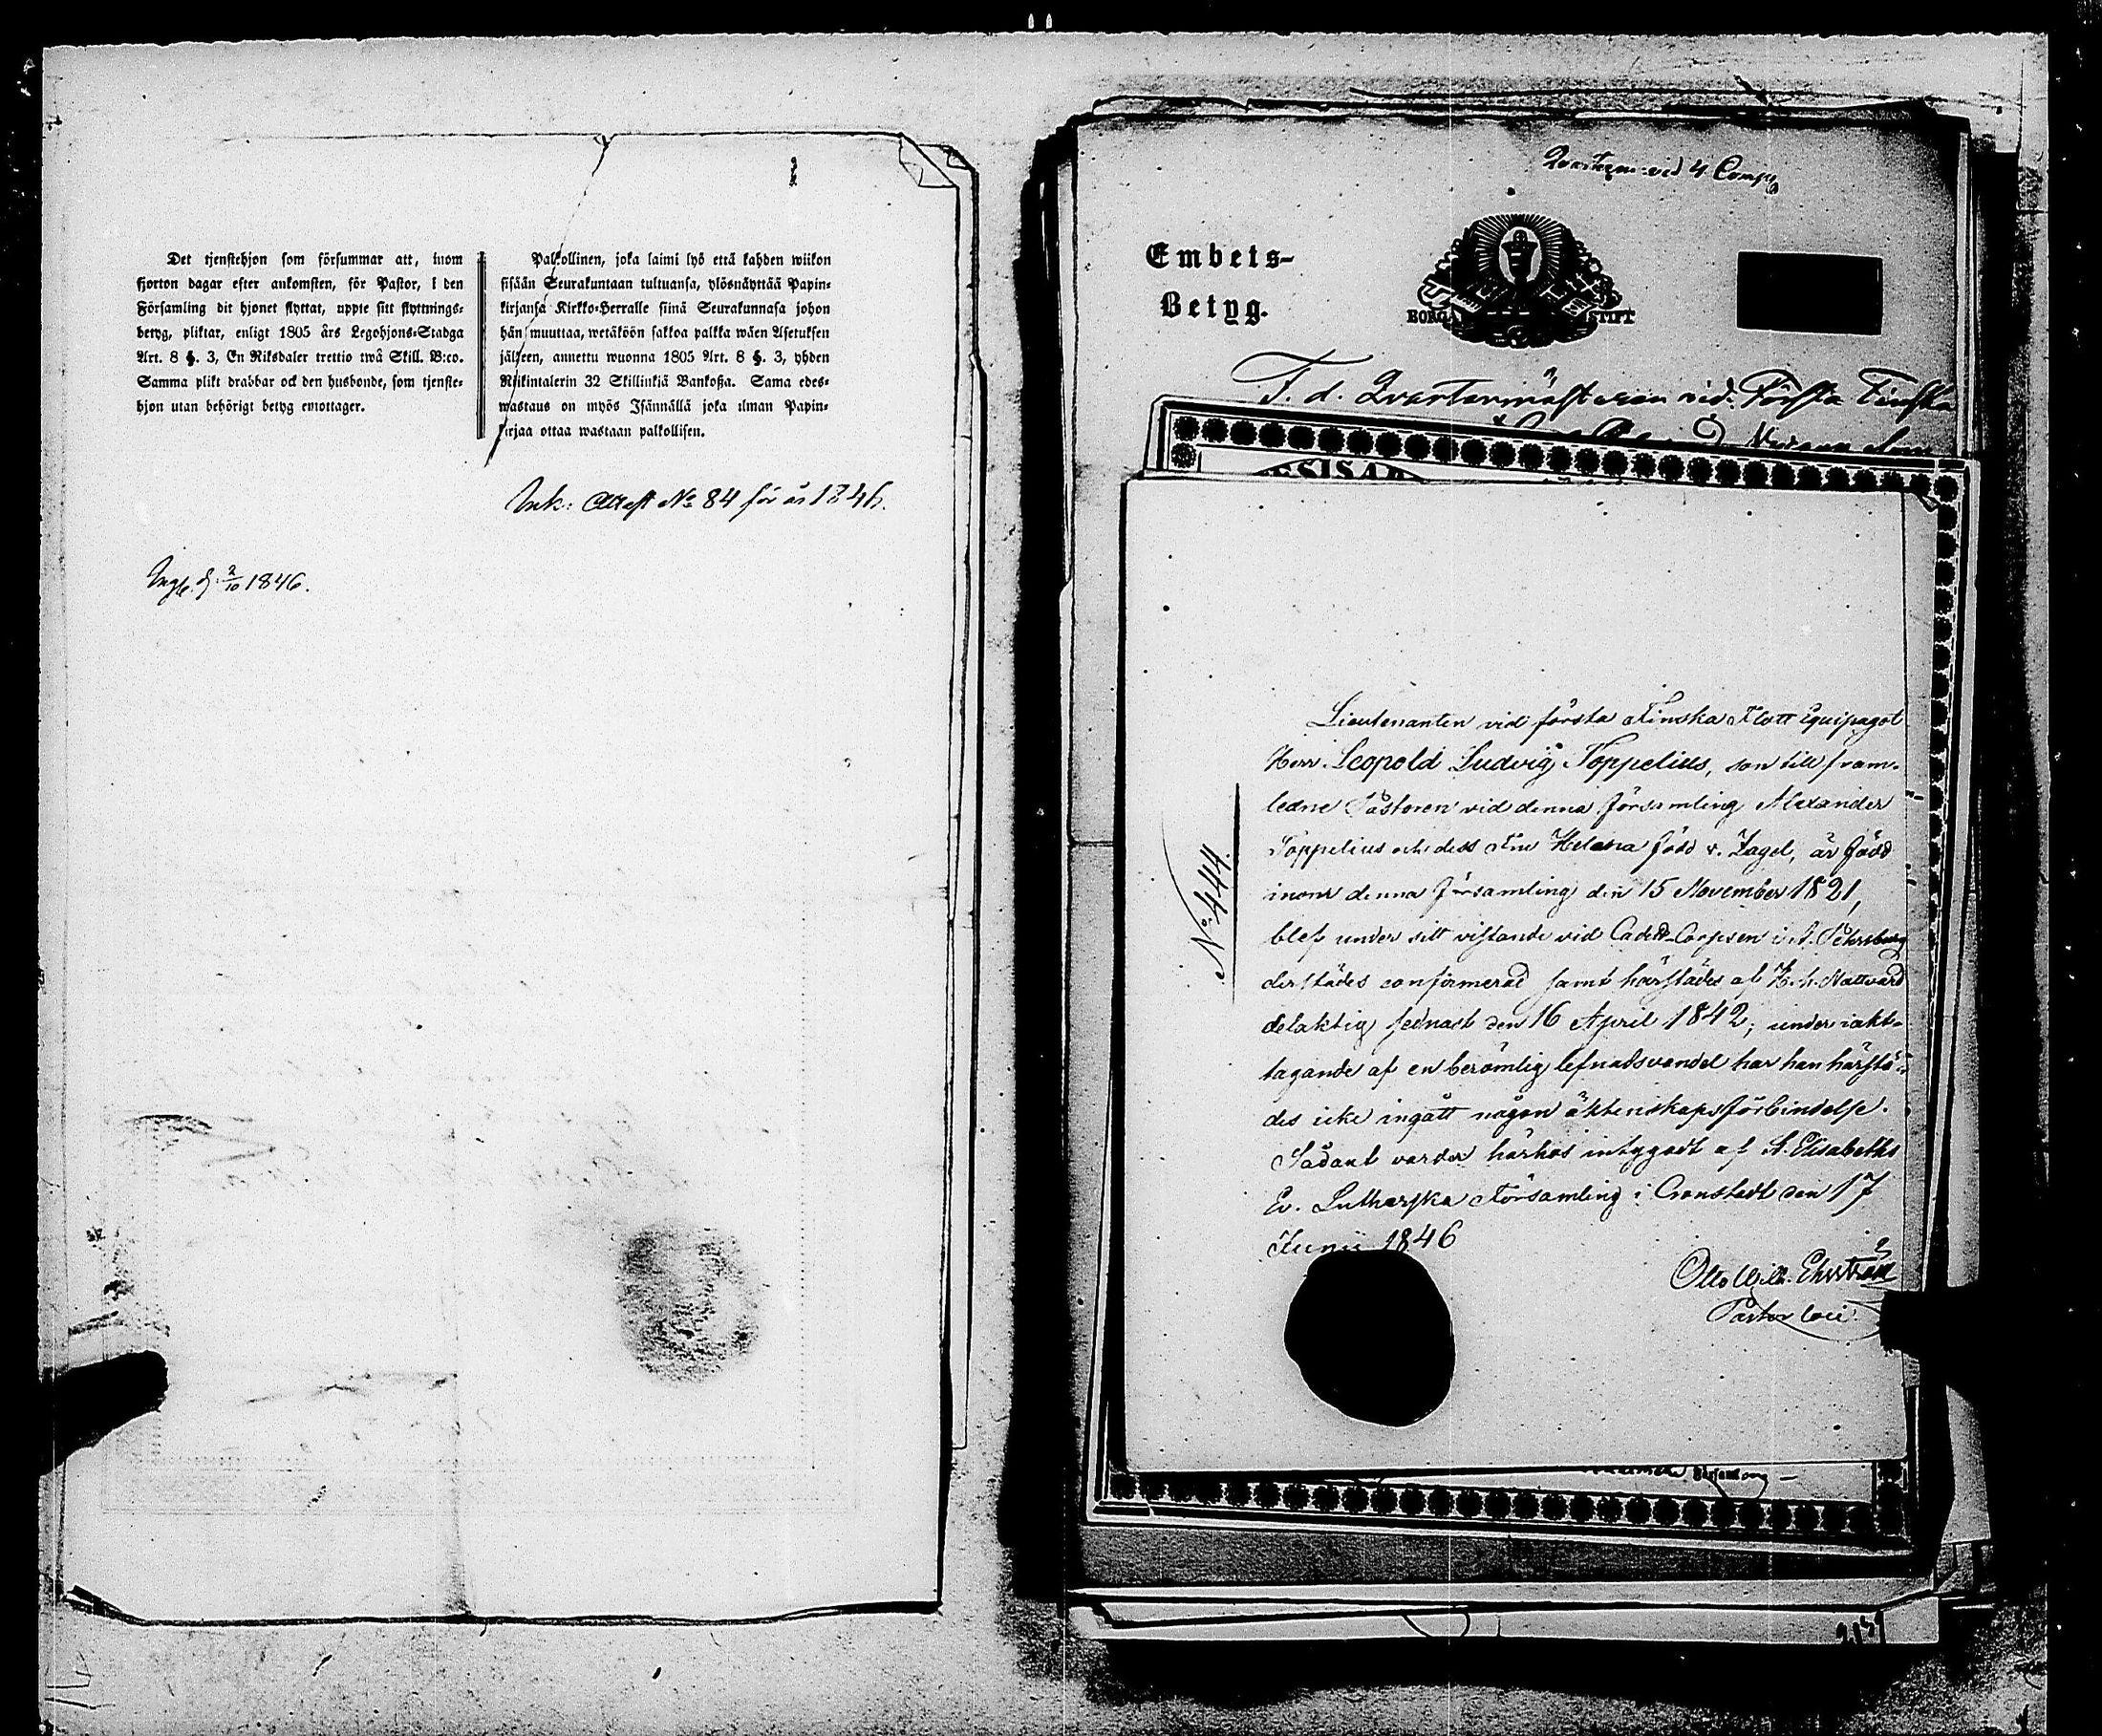 Det tjenstehjon som försummar att, inom
fjorton dagar efter ankomsten, för Pastor, i den
Församling dit hjonet flyttat, uppte sitt flyttnings-
betyg, pliktar, enligt 1805 års Legohjons-Stadga
Art. 8 §. 3, En Riksdaler trettio twå Skill. B:co.
Samma plikt drabbar ock den husbonde, som tjenste-
hjon utan behörigt betyg emottager.
Palkollinen, joka laimi lyö että kahden wiikon
sisään Seurakuntaan tultuansa, ylösnäyttää Papin-
kirjansa Kirkko-Herralle siinä Seurakunnasa johon
hän muuttaa, wetäköön sakkoa palkka wäen Asetuksen
jälkeen, annettu wuonna 1805 Art. 8 §. 3, yhden
Riikintalerin 32 Skillinkiä Bankosa. Sama edes-
wastaus on myös Isännällä joka ilman Papin-
kirjaa ottaa wastaan palkollisen.
Ink: Attest No 84 för år 1846.
d. 2/10 1846.
vid 4 Comp
Embets-
Betyg.
BORGÅ STIFT
F. d. Qvartermästeren vid Första Finska
Lieutenanten vid första Finska Flott Equipaget
Herr Leopold Ludvig Toppelius, son till fram-
ledne Pastoren vid denna församling Alexander
Toppelius och dess Fru Helena född v. Zagel, är född
inom denna församling den 15 November 1821,
blef under sitt vistande vid Cadett-Corpsen i S. Petersburg
derstädes confirmerad samt härstädes af H. h. Nattvard
delaktig sednast den 16 April 1842; under iakt-
tagande af en berömlig lefnadsvandel har han härstä-
des icke ingått någon äktenskapsförbindelse.
Sådant varder härhos intygadt af St. Elisabeths
Ev. Lutherska Församling i Cronstadt den 17
Junii 1846
Otto Wilh. Ehrström
Pastor loci.
No 444.